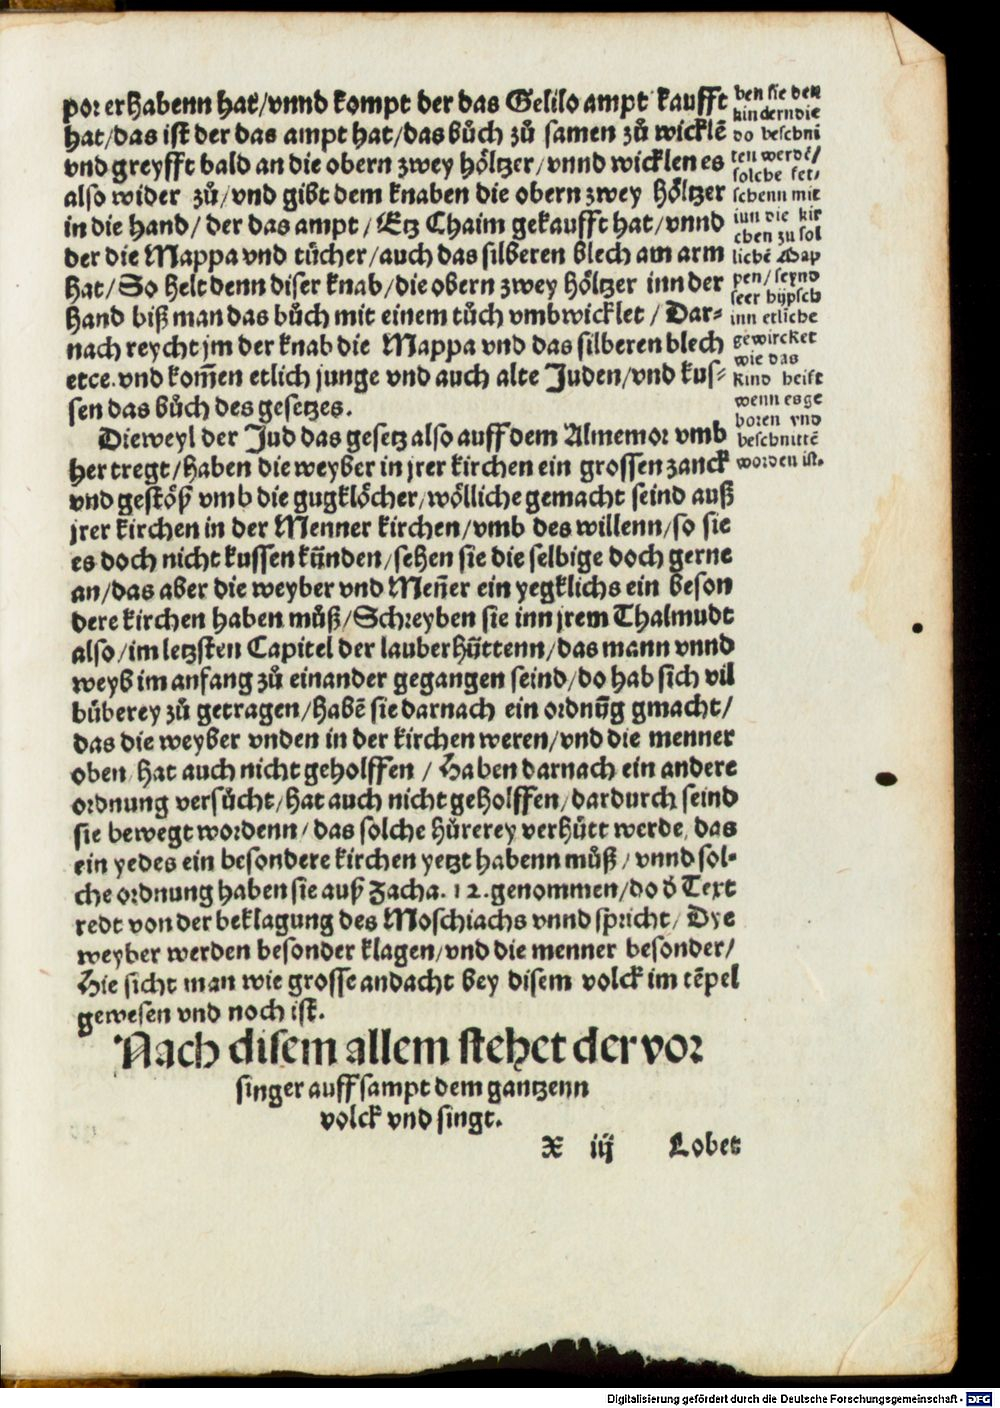 por erhabenn hat/vnnd kompt der das Gelilo ampt kaufft
hat/das ist der das ampt hat/das bůch zů samen zů wicklē
vnd greyfft bald an die obern zwey höltzer/vnnd wicklen es
also wider zů/vnd gibt dem knaben die obern zwey höltzer
in die hand/der das ampt/Etz Chaim gekaufft hat/vnnd
der die Mappa vnd tücher/auch das silberen blech am arm
hat/So helt denn diser knab/die obern zwey höltzer inn der
hand biß man das bůch mit einem tůch vmbwicklet/Dar⸗
nach reycht jm der knab die Mappa vnd das silberen blech
etce. vnd kom̄en etlich junge vnd auch alte Juden/vnd kus⸗
sen das bůch des gesetzes.
Dieweyl der Jud das gesetz also auff dem Almemor vmb
her tregt/haben die weyber in jrer kirchen ein grossen zanck
vnd gestöß vmb die gugklöcher/wölliche gemacht seind auß
jrer kirchen in der Menner kirchen/vmb des willenn/so sie
es doch nicht kussen künden/sehen sie die selbige doch gerne
an/das aber die weyber vnd Men̄er ein yegklichs ein beson
dere kirchen haben můß/Schreyben sie inn jrem Thalmudt
also/im letzsten Capitel der lauberhüttenn/das mann vnnd
weyb im anfang zů einander gegangen seind/do hab sich vil
bůberey zů getragen/habē sie darnach ein ordnūg gmacht/
das die weyber vnden in der kirchen weren/vnd die menner
oben/hat auch nicht geholffen/Haben darnach ein andere
ordnung versůcht/hat auch nicht geholffen/dardurch seind
sie bewegt wordenn/das solche hůrerey verhütt werde/das
ein yedes ein besondere kirchen yetzt habenn můß/vnnd sol⸗
che ordnung haben sie auß Zacha. 12. genommen/do d̄ Text
redt von der beklagung des Moschiachs vnnd spricht/Dye
weyber werden besonder klagen/vnd die menner besonder/
Hie sicht man wie grosse andacht bey disem volck im tēpel
gewesen vnd noch ist.
Nach disem allem stehet der vor
singer auff sampt dem gantzenn
volck vnd singt.
X iij Lobet
ben sie den
kindern die
do beschni
ten werdē/
solche fet/
schenn mit
inn die kir
chen zu sol
lichē Map
pen/seynd
seer hüpsch
inn etliche
gewircket
wie das
Kind heist
wenn es ge
boren vnd
beschnittē
worden ist.
Digitalisierung gefördert durch die Deutsche Forschungsgemeinschaft - DFG